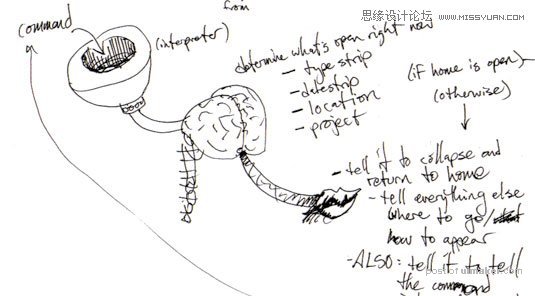 思缘设计论坛 WWW.MISSYUAN.COM
from
command
(interpreter)
determine what's open right now
- type strip
- datestrip
- location
- project
(if home is open)
(otherwise)
- tell it to collapse and
return to home
- tell everything else
where to go/
how to appear
- ALSO: tell it to tell
the command
post of uimaker.com